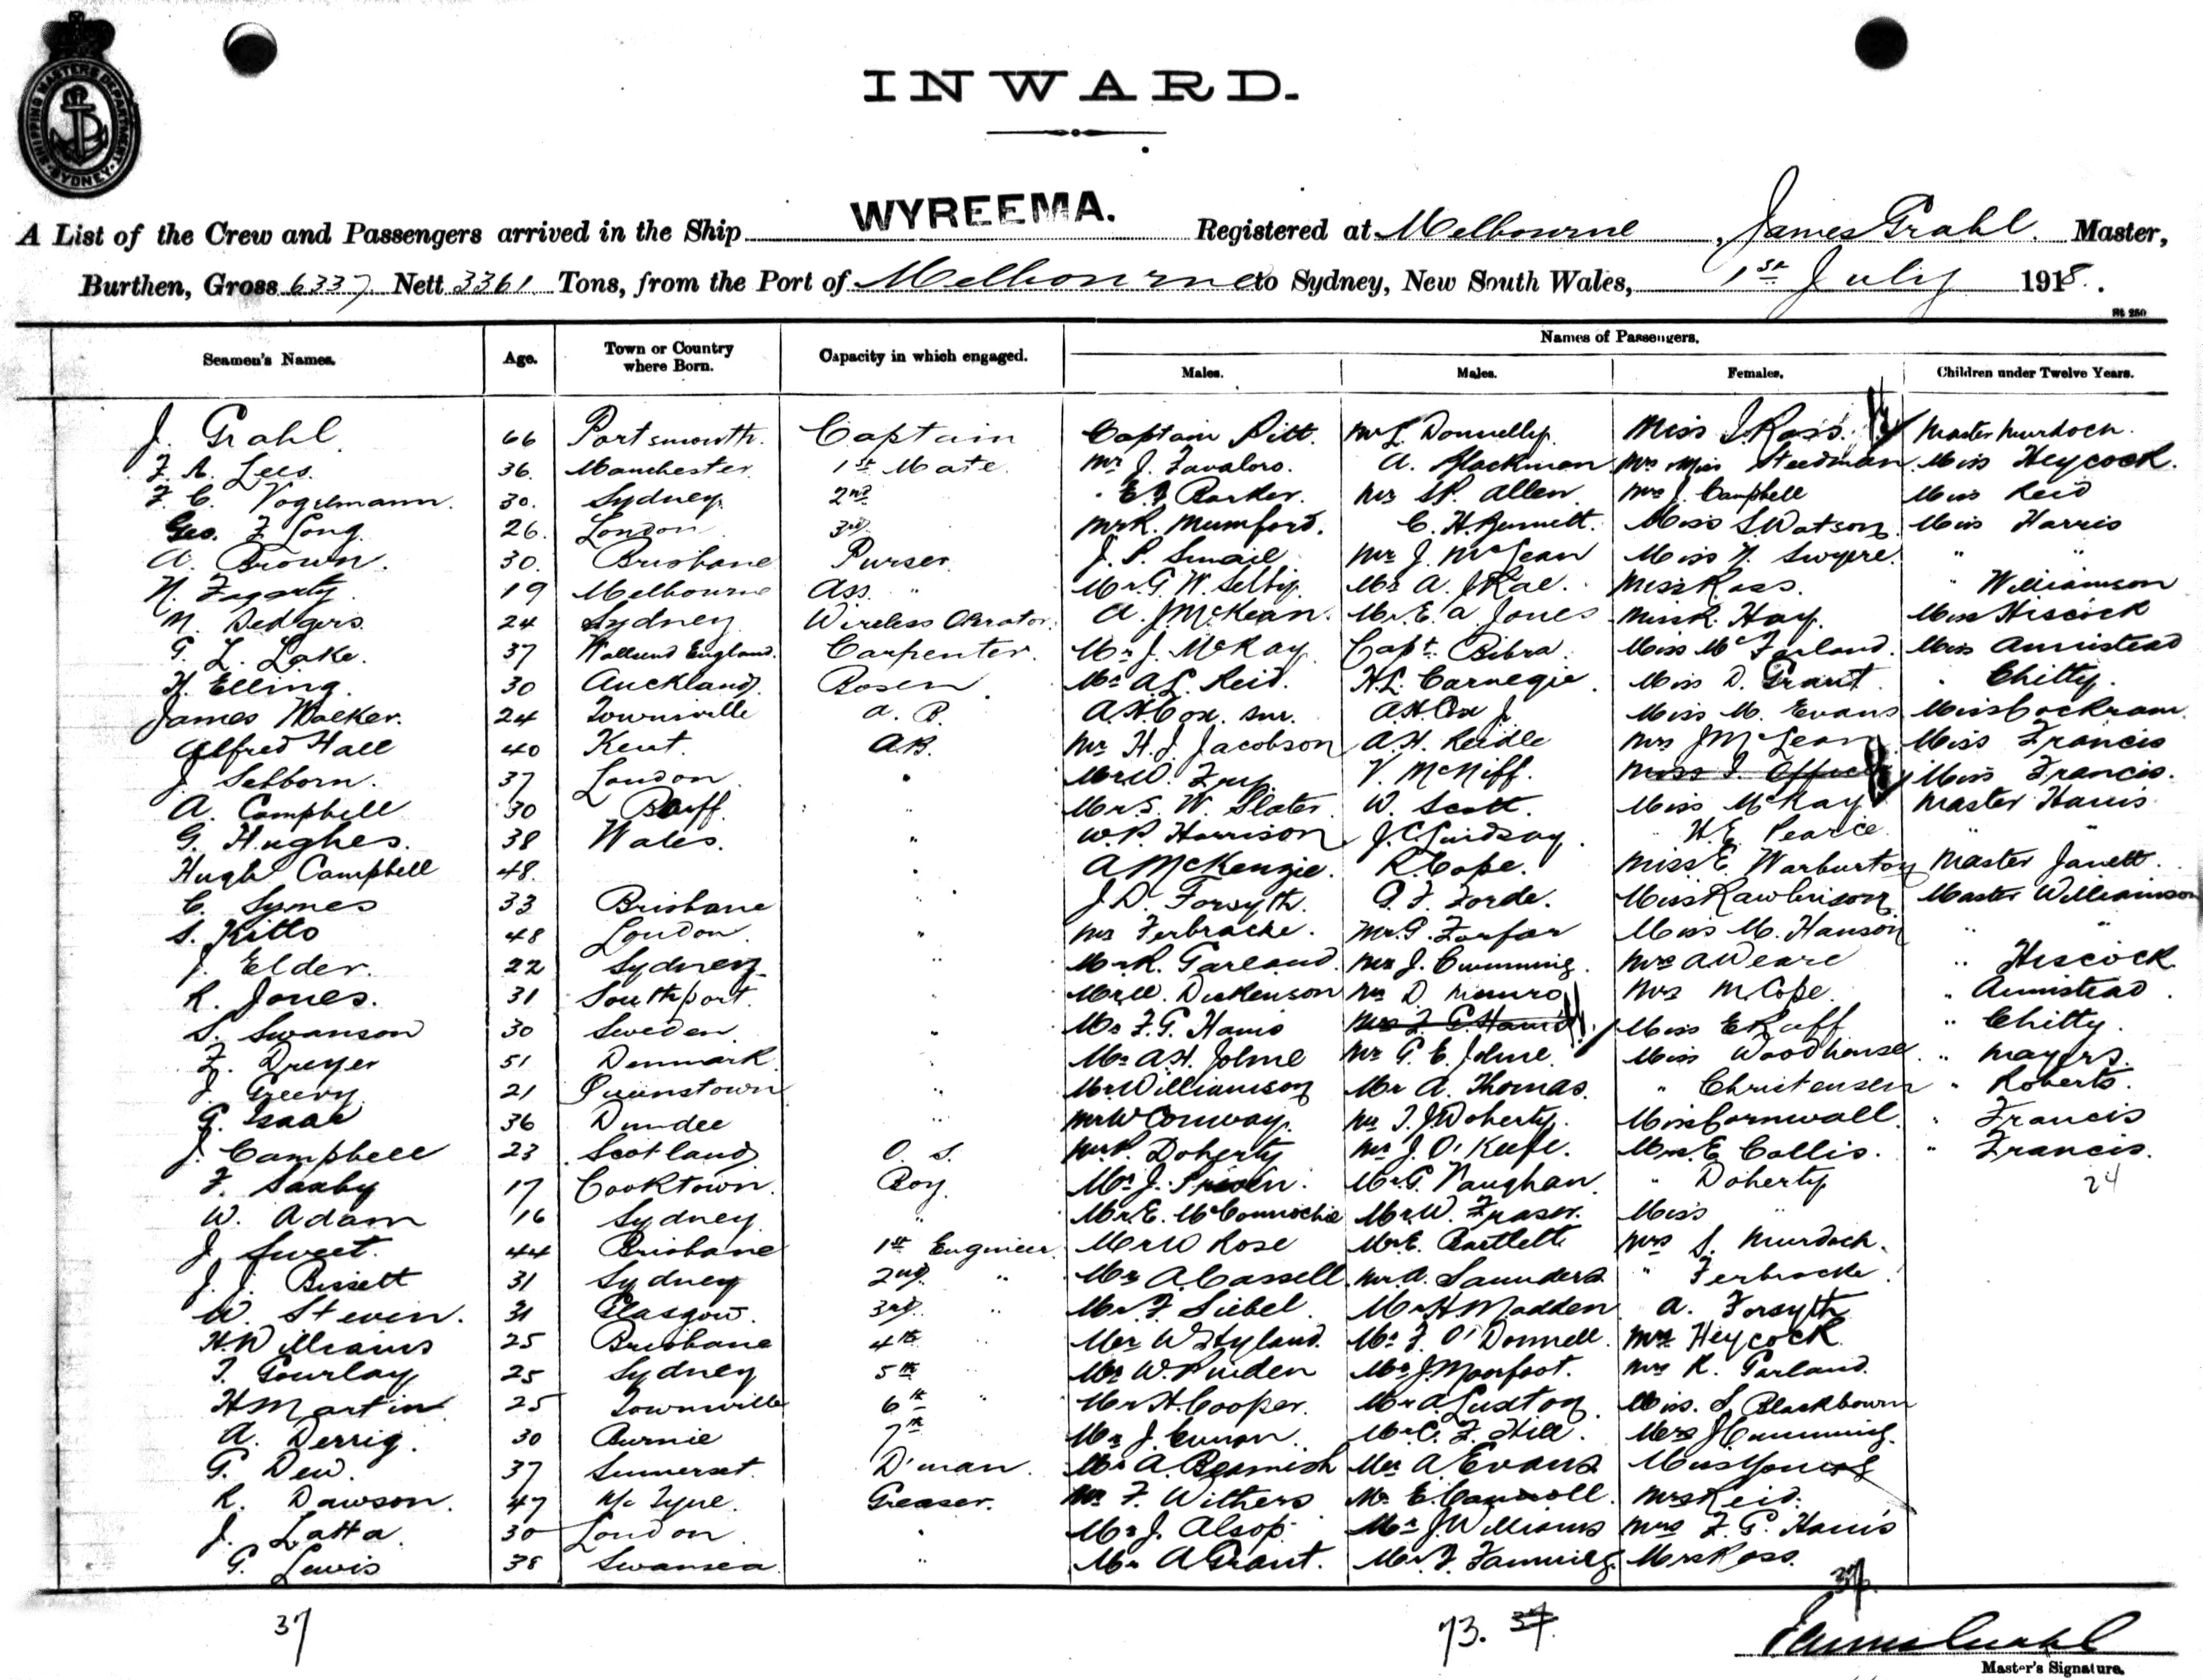 SHIPPING MASTERS DEPARTMENT · SYDNEY ·
INWARD.
A List of the Crew and Passengers arrived in the Ship WYREEMA. Registered at Melbourne, James Grahl. Master,
Burthen, Gross 6337 Nett 3361 Tons, from the Port of Melbourne to Sydney, New South Wales, 1st July 1918.
St 250
Names of Passengers.
Seamen's Names. Age. Town or Country where Born. Capacity in which engaged. Males. Males. Females. Children under Twelve Years.
J. Grahl 66 Portsmouth. Captain Captain Pitt. Mr L. Donnelly. Miss I. Ross. Master Murdoch.
F. A. Lees. 36. Manchester 1st Mate. Mr J. Favaloro. A. Blackman Miss Steedman. Miss Heycock.
F. C. Vogelmann. 30. Sydney. 2nd E. J. Barker. Mr S.P. Allen. Mrs J. Campbell Miss Reid
Geo. F Long. 26. London 3rd Mr R. Mumford. C. H. Bennett. Miss L. Watson. Miss Harris
A. Brown. 30. Brisbane Purser. J. P. Smail Mr J. McLean Miss N. Swyere. " "
N. Fogarty. 19 Melbourne Ass. " Mr G. W. Selby. Mr A. J Rae. Miss Ross. " Williamson
N. Dedgers 24 Sydney. Wireless Oprator. A. J McKean. Mr E. A. Jones Miss R. Hay. Miss Hiscock
G. L. Lake. 37 Wallsend England. Carpenter. Mr J. McKay Capt. Bibra. Miss McFarland. Miss Armistead
H. Elling. 30 Auckland. Bosen. Mr A.L. Reid. H.L. Carnegie. Miss D. Grant. " Chitty.
James Walker. 24 Townsville A. B. A.H. Cox. snr. A.H. Cox Jr Miss M. Evans Miss Cockram
Alfred Hall 40 Kent. A.B. Mr H. J. Jacobson A.H. Reidle Mrs J McLean Miss Francis
J. Selborn. 37 London " Mr W. V. McNiff. Miss J. Miss Francis.
A. Campbell 30 Banff. " Mr S. W. Slater. W. Scott. Miss McKay Master Harris
G. Hughes. 38 Wales. " W.P. Harrison J.C. Lindsay. " H.E. Pearce " "
Hugh Campbell 48. " A McKenzie. R. Cope. Miss E. Warburton Master Janett.
C. Symes 33 Brisbane " J. D. Forsyth. G. F. Forde. Miss Rawlinson. Master Williamson
S. Kitto 48 London. " Mr Ferbrache. Mr G. Forfar Miss M. Hanson " "
J. Elder. 22 Sydney " Mr R. Garland. Mr J. Cumming. Mrs A Weare " Hiscock
R. Jones. 31 Southport. Mr W. Dickenson Mr D. Munro Mrs M. Cope. " Armistead.
S. Swanson 30 Sweden. " Mr F. G. Harris Mrs F. G. Harris Miss E Ruff " Chitty.
F. Dreyer 51 Denmark. " Mr A.H. Jolme Mr G. E. Jolme. Miss Woodhouse. " Mayers.
J. Greevy. 21 Queenstown " Mr Williamson Mr A. Thomas. " Christensen " Roberts.
G. Isaac 36 Dundee " Mr W Conway. Mr T. J Doherty. Miss Cornwall. " Francis
J. Campbell 23 Scotland O. S. Mr P. Doherty Mr J. O'Keefe. Mrs E Collis. " Francis.
F. Saxby 17 Cooktown. Boy. Mr J. Mr G. Vaughan. " Doherty 24
W. Adam 16 Sydney. " Mr E. McConnochie Mr W. Fraser. Miss "
J. Sweet. 44 Brisbane 1st Engineer. Mr W Rose Mr E. Bartlett Mrs S. Murdoch.
J. J. Bissett 31 Sydney 2nd. " Mr A. Cassell Mr A. Saunders. " Ferbrache.
W. Steven. 31 Glasgow. 3rd. " Mr F. Siebel. Mr H Madden A. Forsyth
H. Williams 25 Brisbane 4th " Mr W Styland. Mr F. O'Donnell. Mrs Heycock
T. Gourlay 25 Sydney 5th " Mr W. Puiden Mr J Moorfoot. Mrs R. Garland.
H Martin 25 Townsville 6th " Mr H. Cooper. Mr A Luxton. Miss. S. Blackbourn
A. Derrig. 30 Burnie 7th Mr J. Curran. Mr C. F. Hill. Mrs J Cumming.
G. Dew. 37 Sumerset. D'man. Mr A. Beamish Mr A Evans Miss Young
R. Dawson. 47 N/c Tyne. Greaser. Mr F. Withers Mr E. Carroll. Mrs Reid.
J. Latta. 30 London " Mr J. Alsop. Mr J Williams Mrs F. G. Harris
G. Lewis 38 Swansea " Mr A Grant. Mr F. Fanning. Mrs Ross.
37 73. 37 37
James Grahl
Master's Signature.